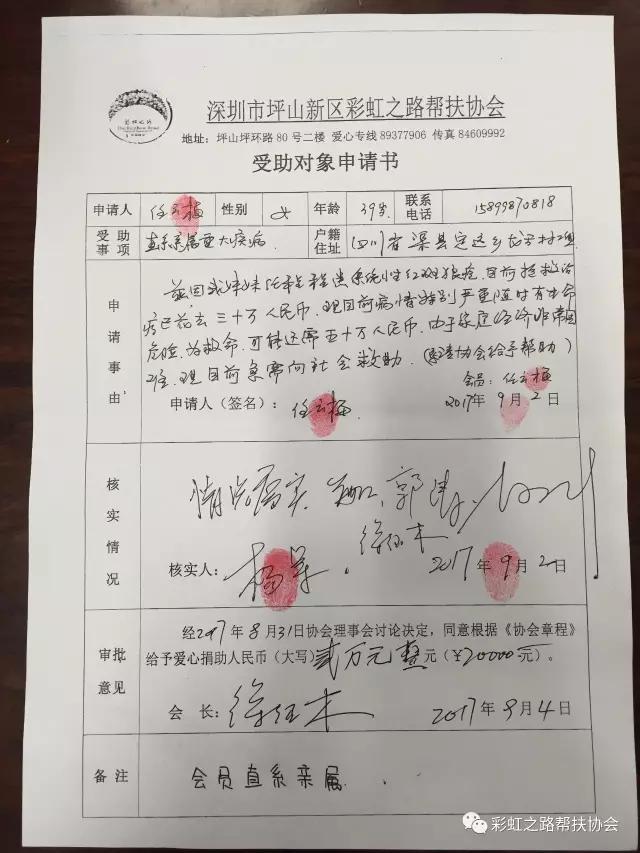 彩虹之路
The Rainbow Road
深圳市坪山新区彩虹之路帮扶协会
地址：坪山坪环路 80 号二楼 爱心专线 89377906 传真 84609992
受助对象申请书
申请人 任云梅 性别 女 年龄 39岁 联系电话 15899870818
受助事项 直系亲属重大疾病 户籍住址 四川省渠县定远乡
申请事由
兹因我妹妹任 患系统性红斑狼疮，目前抢救治
病已花去三十万人民币，现目前病情特别严重随时有生命
危险，为救命，可能还需五十万人民币，由于家庭经济非常困
难，现目前急需向社会救助．（恳请协会给予帮助）
会员：任云梅
申请人（签名）： 任云梅 2017年 9月 2日
核实情况
情况属实
徐伍木
核实人： 杨军 2017年 9月 2日
审批意见
经2017年 8月 31日协会理事会讨论决定，同意根据《协会章程》
给予爱心捐助人民币（大写）贰万元整元（￥20000元）。
会 长： 徐伍木 2017年 9月 4日
备注 会员直系亲属．
彩虹之路帮扶协会